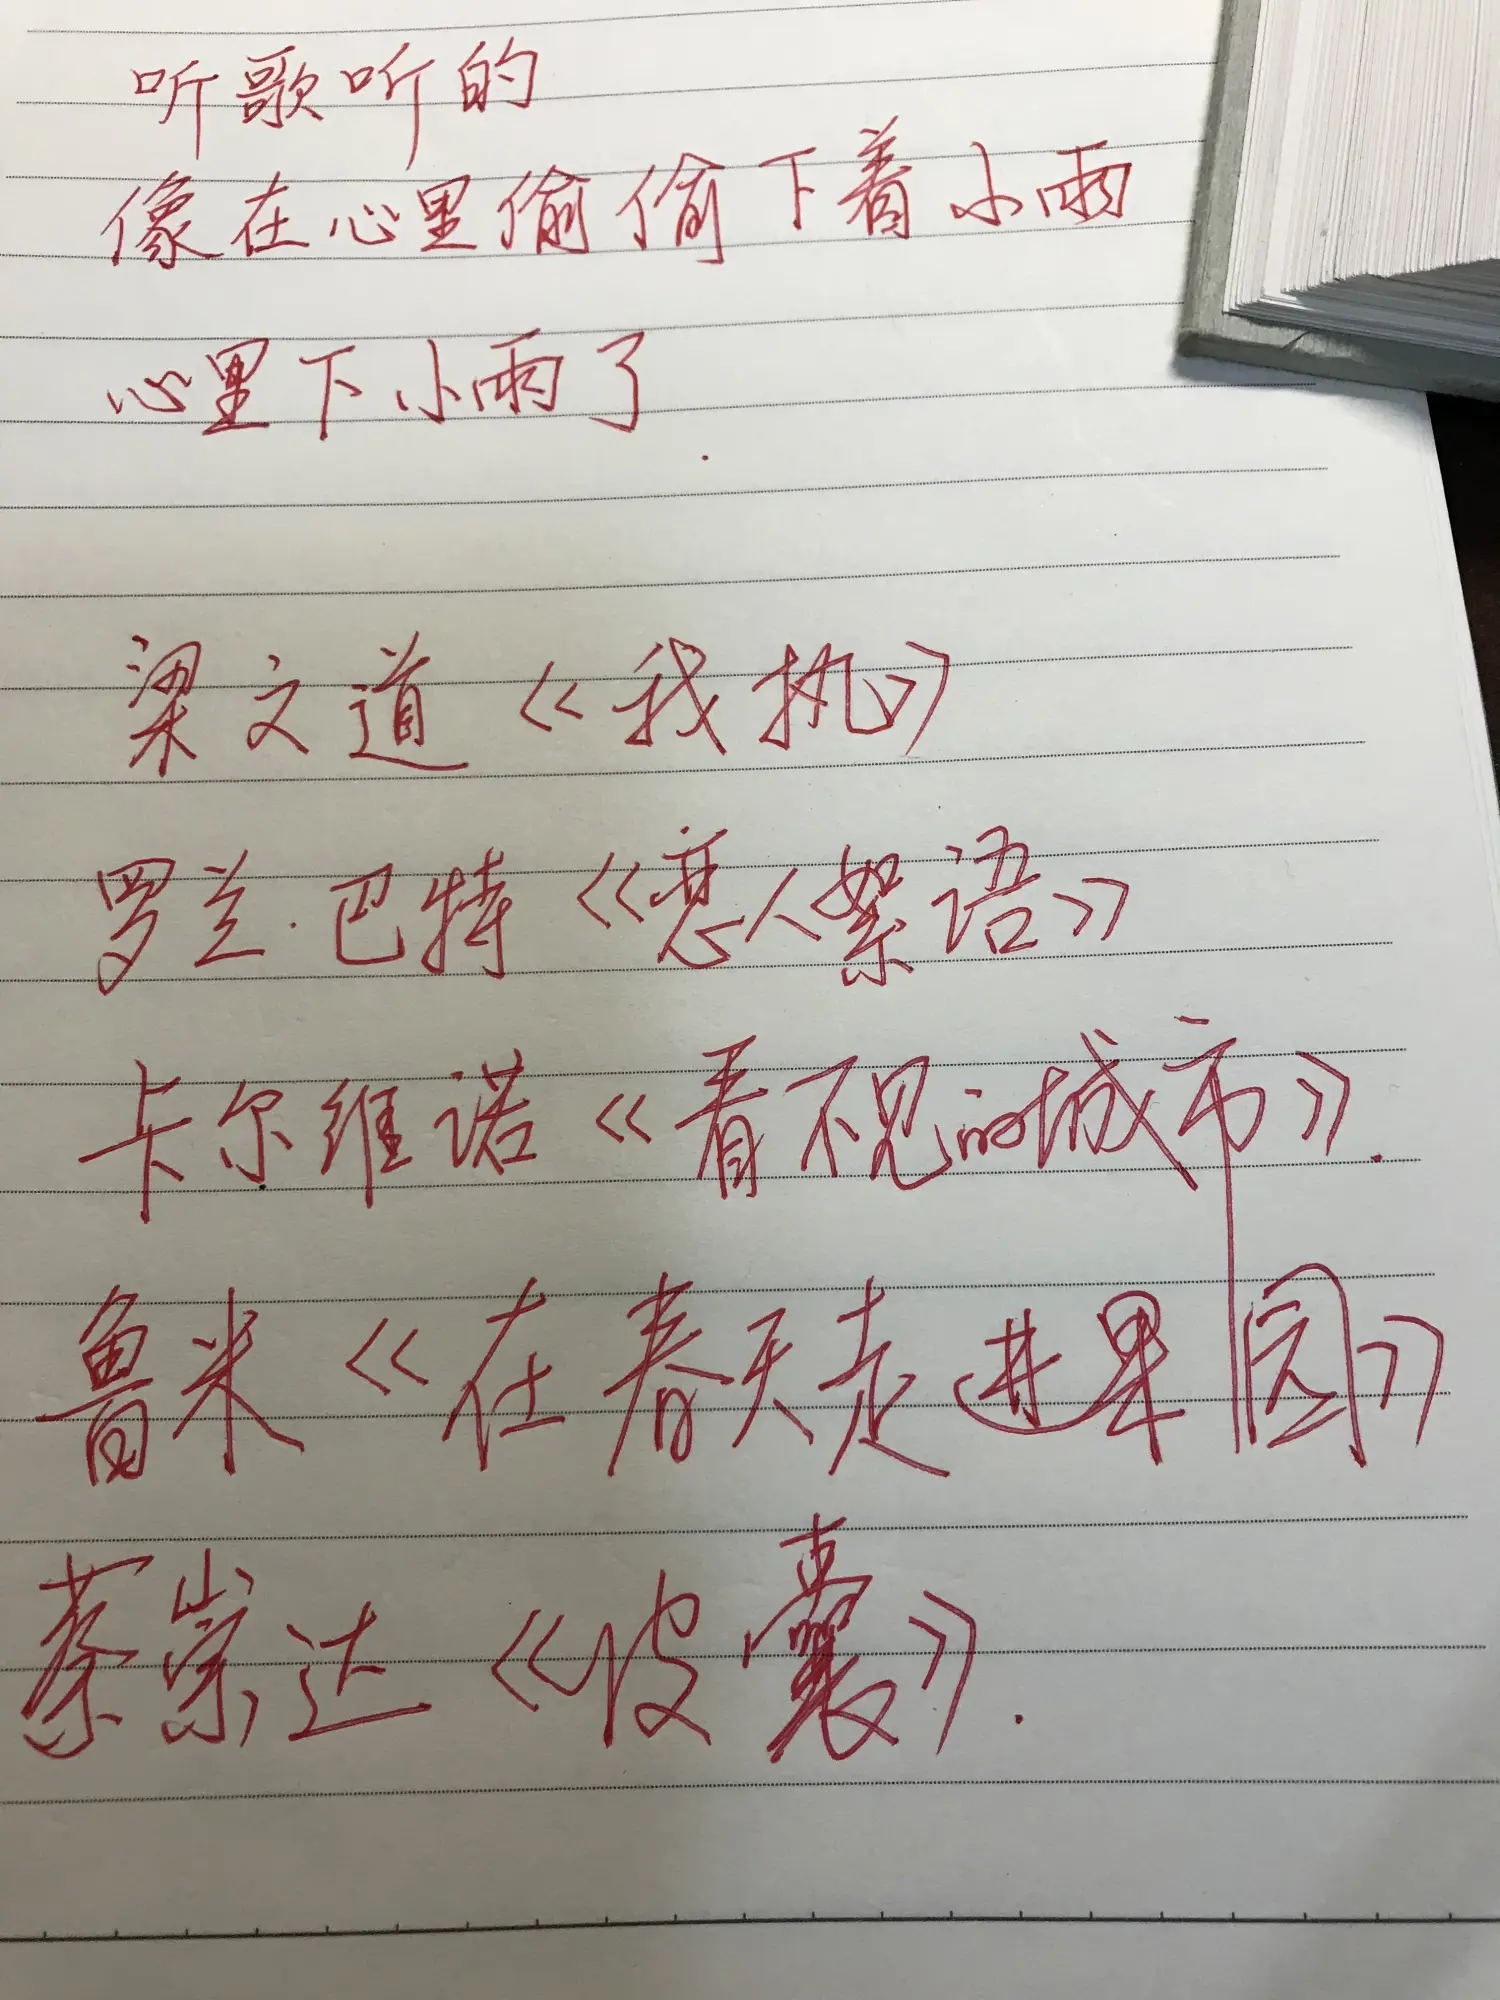 听歌听的
像在心里偷偷下着小雨
心里下小雨了.
梁文道《我执》
罗兰·巴特《恋人絮语》
卡尔维诺《看不见的城市》.
鲁米《在春天走进果园》
蔡崇达《皮囊》.